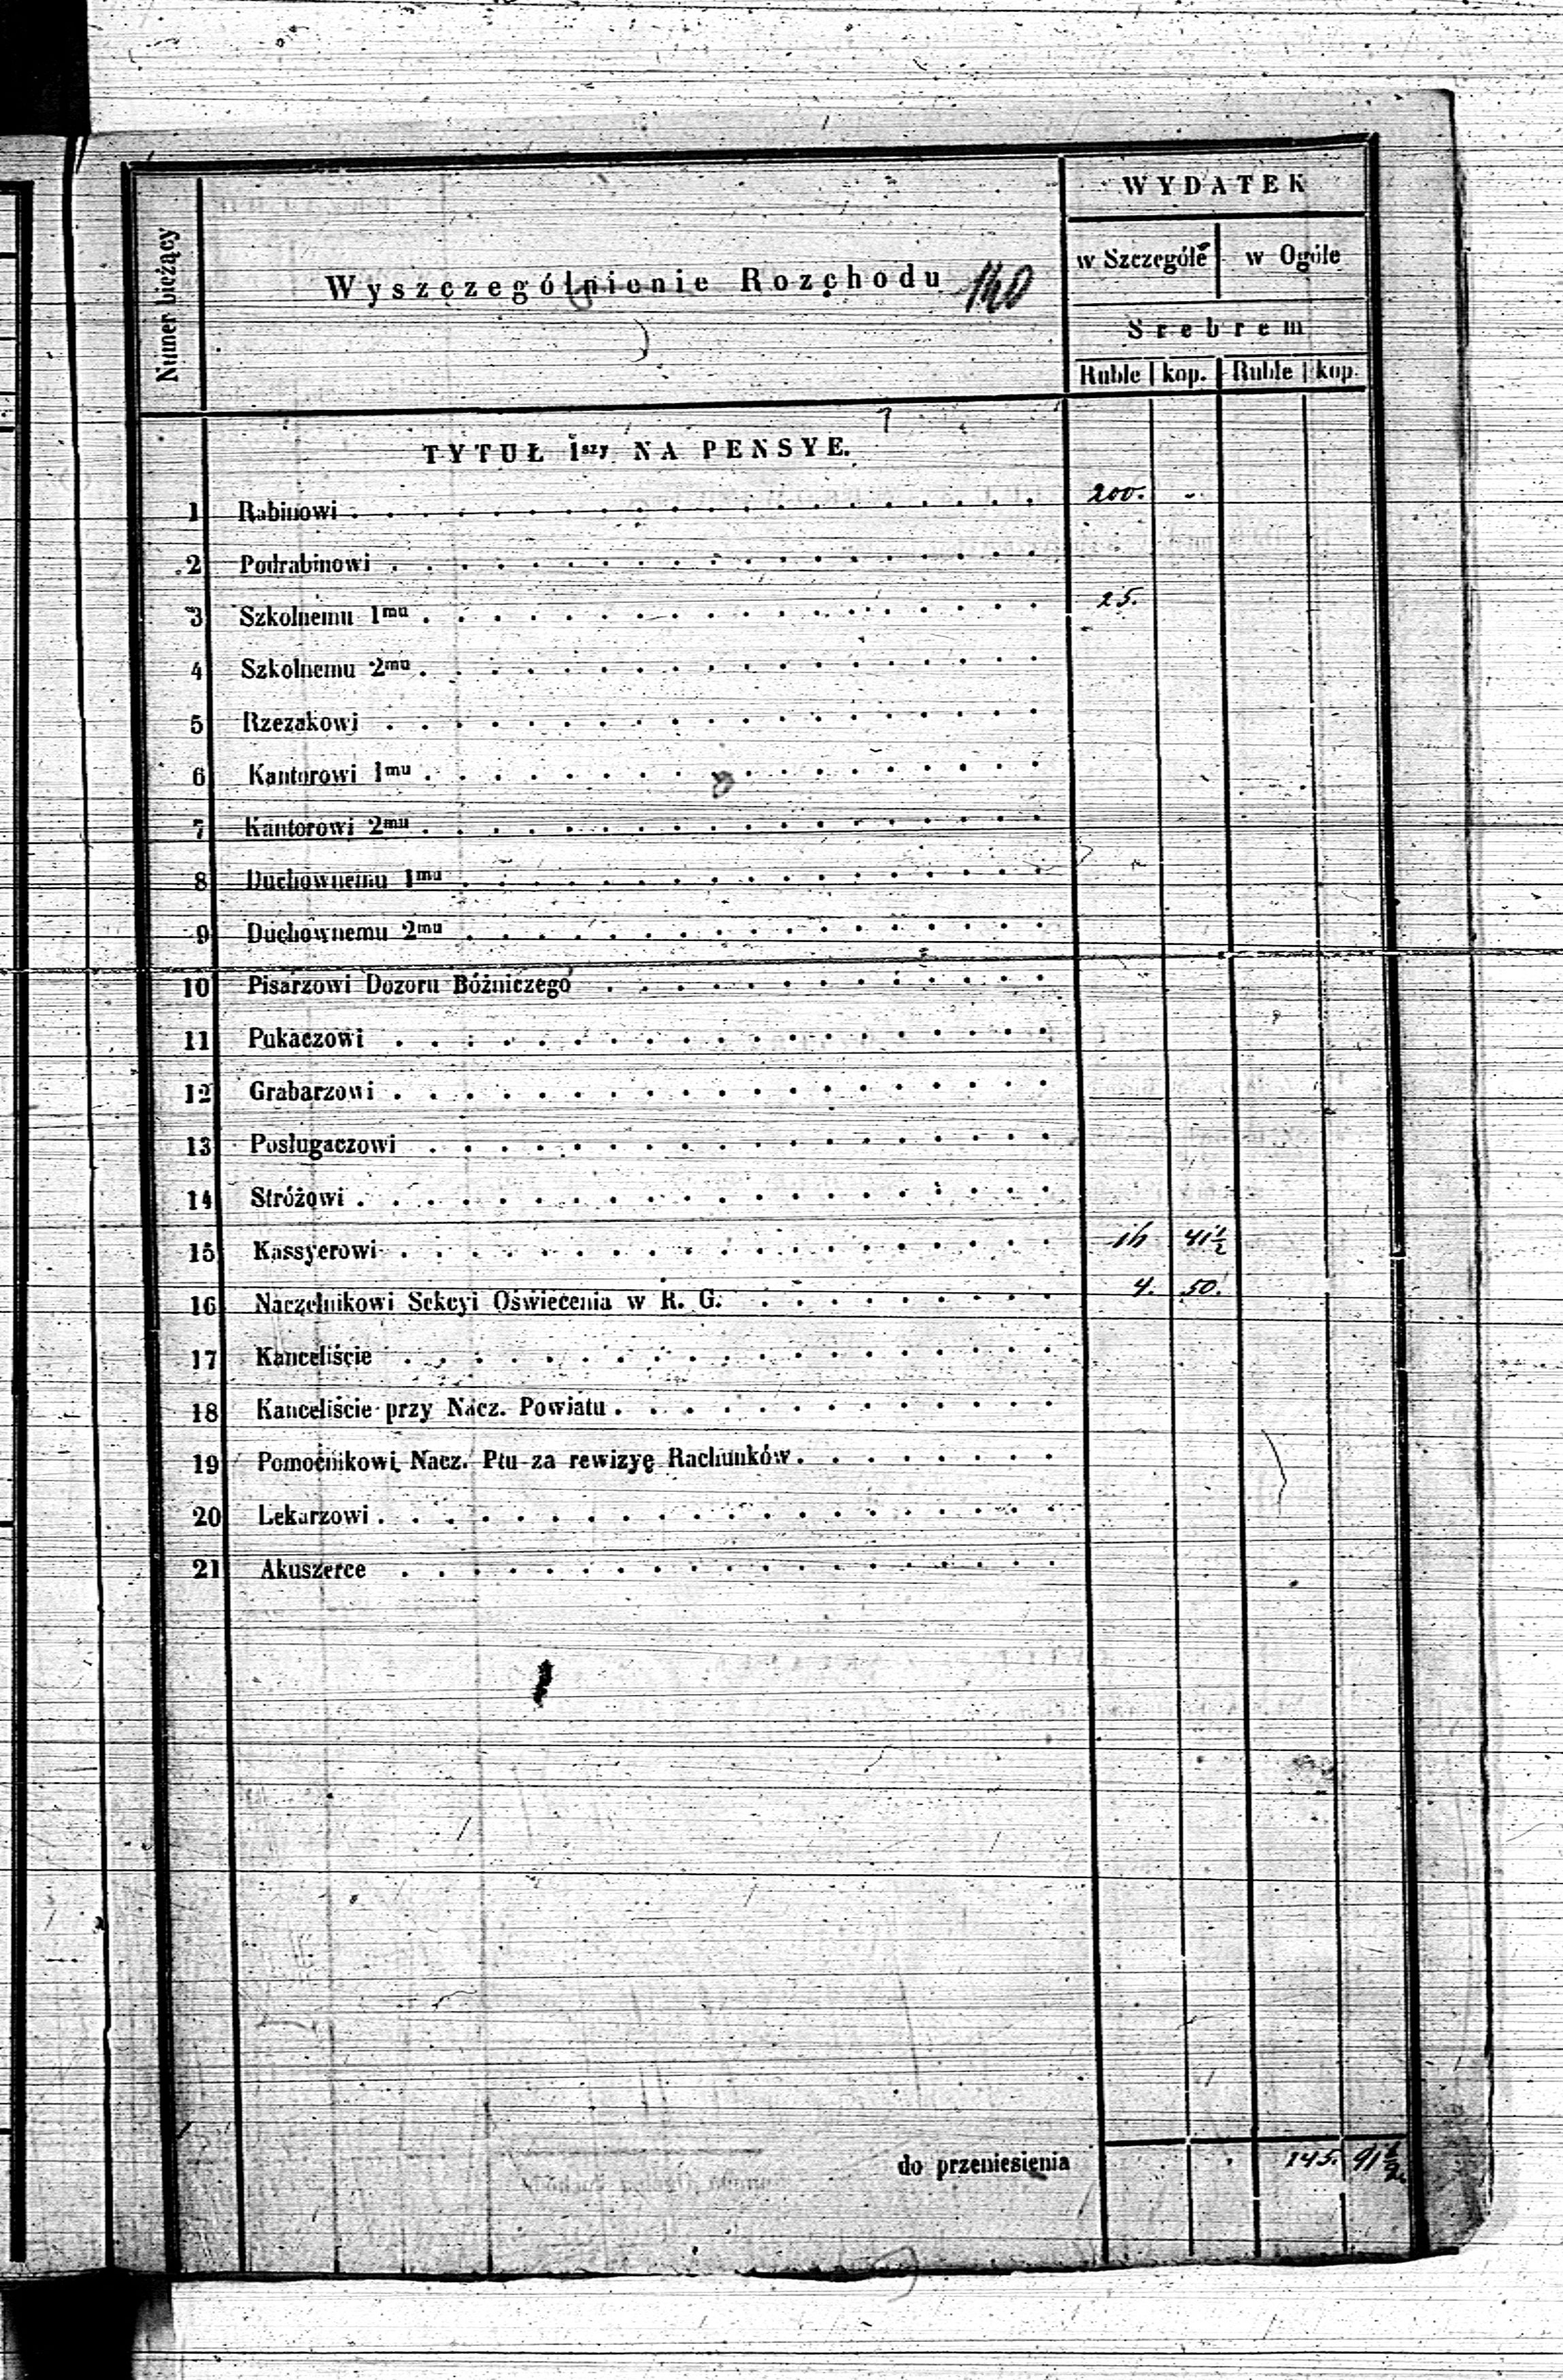 Numer bieżący
Wyszczególnienie Rozchodu 140
WYDATEK
w Szczególe w Ogóle
Srebrem
Ruble kop. Ruble kop.
TYTUŁ 1szy NA PENSYE.
1 Rabinowi 200. -
2 Podrabinowi
3 Szkolnemu 1mu 25.
4 Szkolnemu 2mu
5 Rzezakowi
6 Kantorowi 1mu
7 Kantorowi 2mu
8 Duchownemu 1mu
9 Duchownemu 2mu
10 Pisarzowi Dozoru Bóżniczego
11 Pukaczowi
12 Grabarzowi
13 Posługaczowi
14 Stróżowi
15 Kassyerowi 41½
16 Naczelnikowi Sekcyi Oświecenia w R. G. 4. 50.
17 Kanceliście
18 Kanceliście przy Nacz. Powiatu
19 Pomocnikowi Nacz. Ptu za rewizyę Rachunków
20 Lekarzowi
21 Akuszerce
do przeniesienia 91½